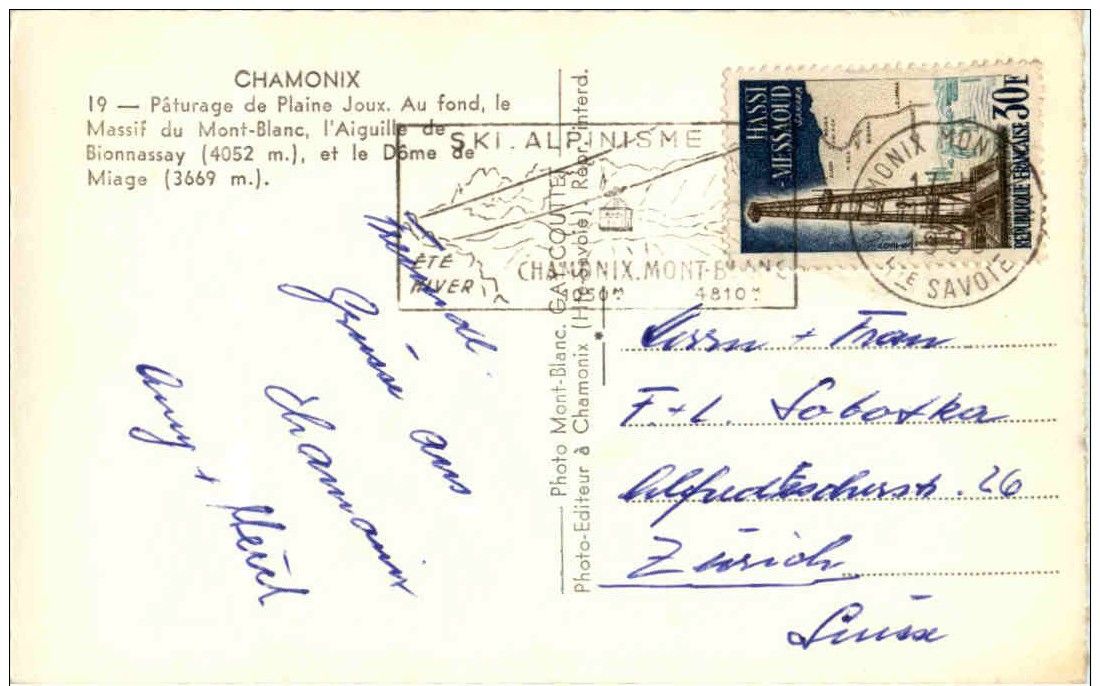 CHAMONIX
19 — Pâturage de Plaine Joux. Au fond, le
Massif du Mont-Blanc, l'Aiguille de
Bionnassay (4052 m.), et le Dôme de
Miage (3669 m.).
SKI. ALPINISME
ÉTÉ
HIVER
CHAMONIX.MONT-BLANC
1050M 4810M
HASSI
-MESSAOUD
SAHARA
30F
REPUBLIQUE FRANÇAISE
CHAMONIX MON
HTE SAVOIE
Photo Mont-Blanc. GAY-COUTTET
Photo-Editeur à Chamonix (Hte-Savoie). Repr. interd.
Freundl.
Grüsse aus
Chamonix
Amy +
Herrn + Frau
F.+L. Sobotka
Alfred Escherstr. 26
Zürich
Suisse